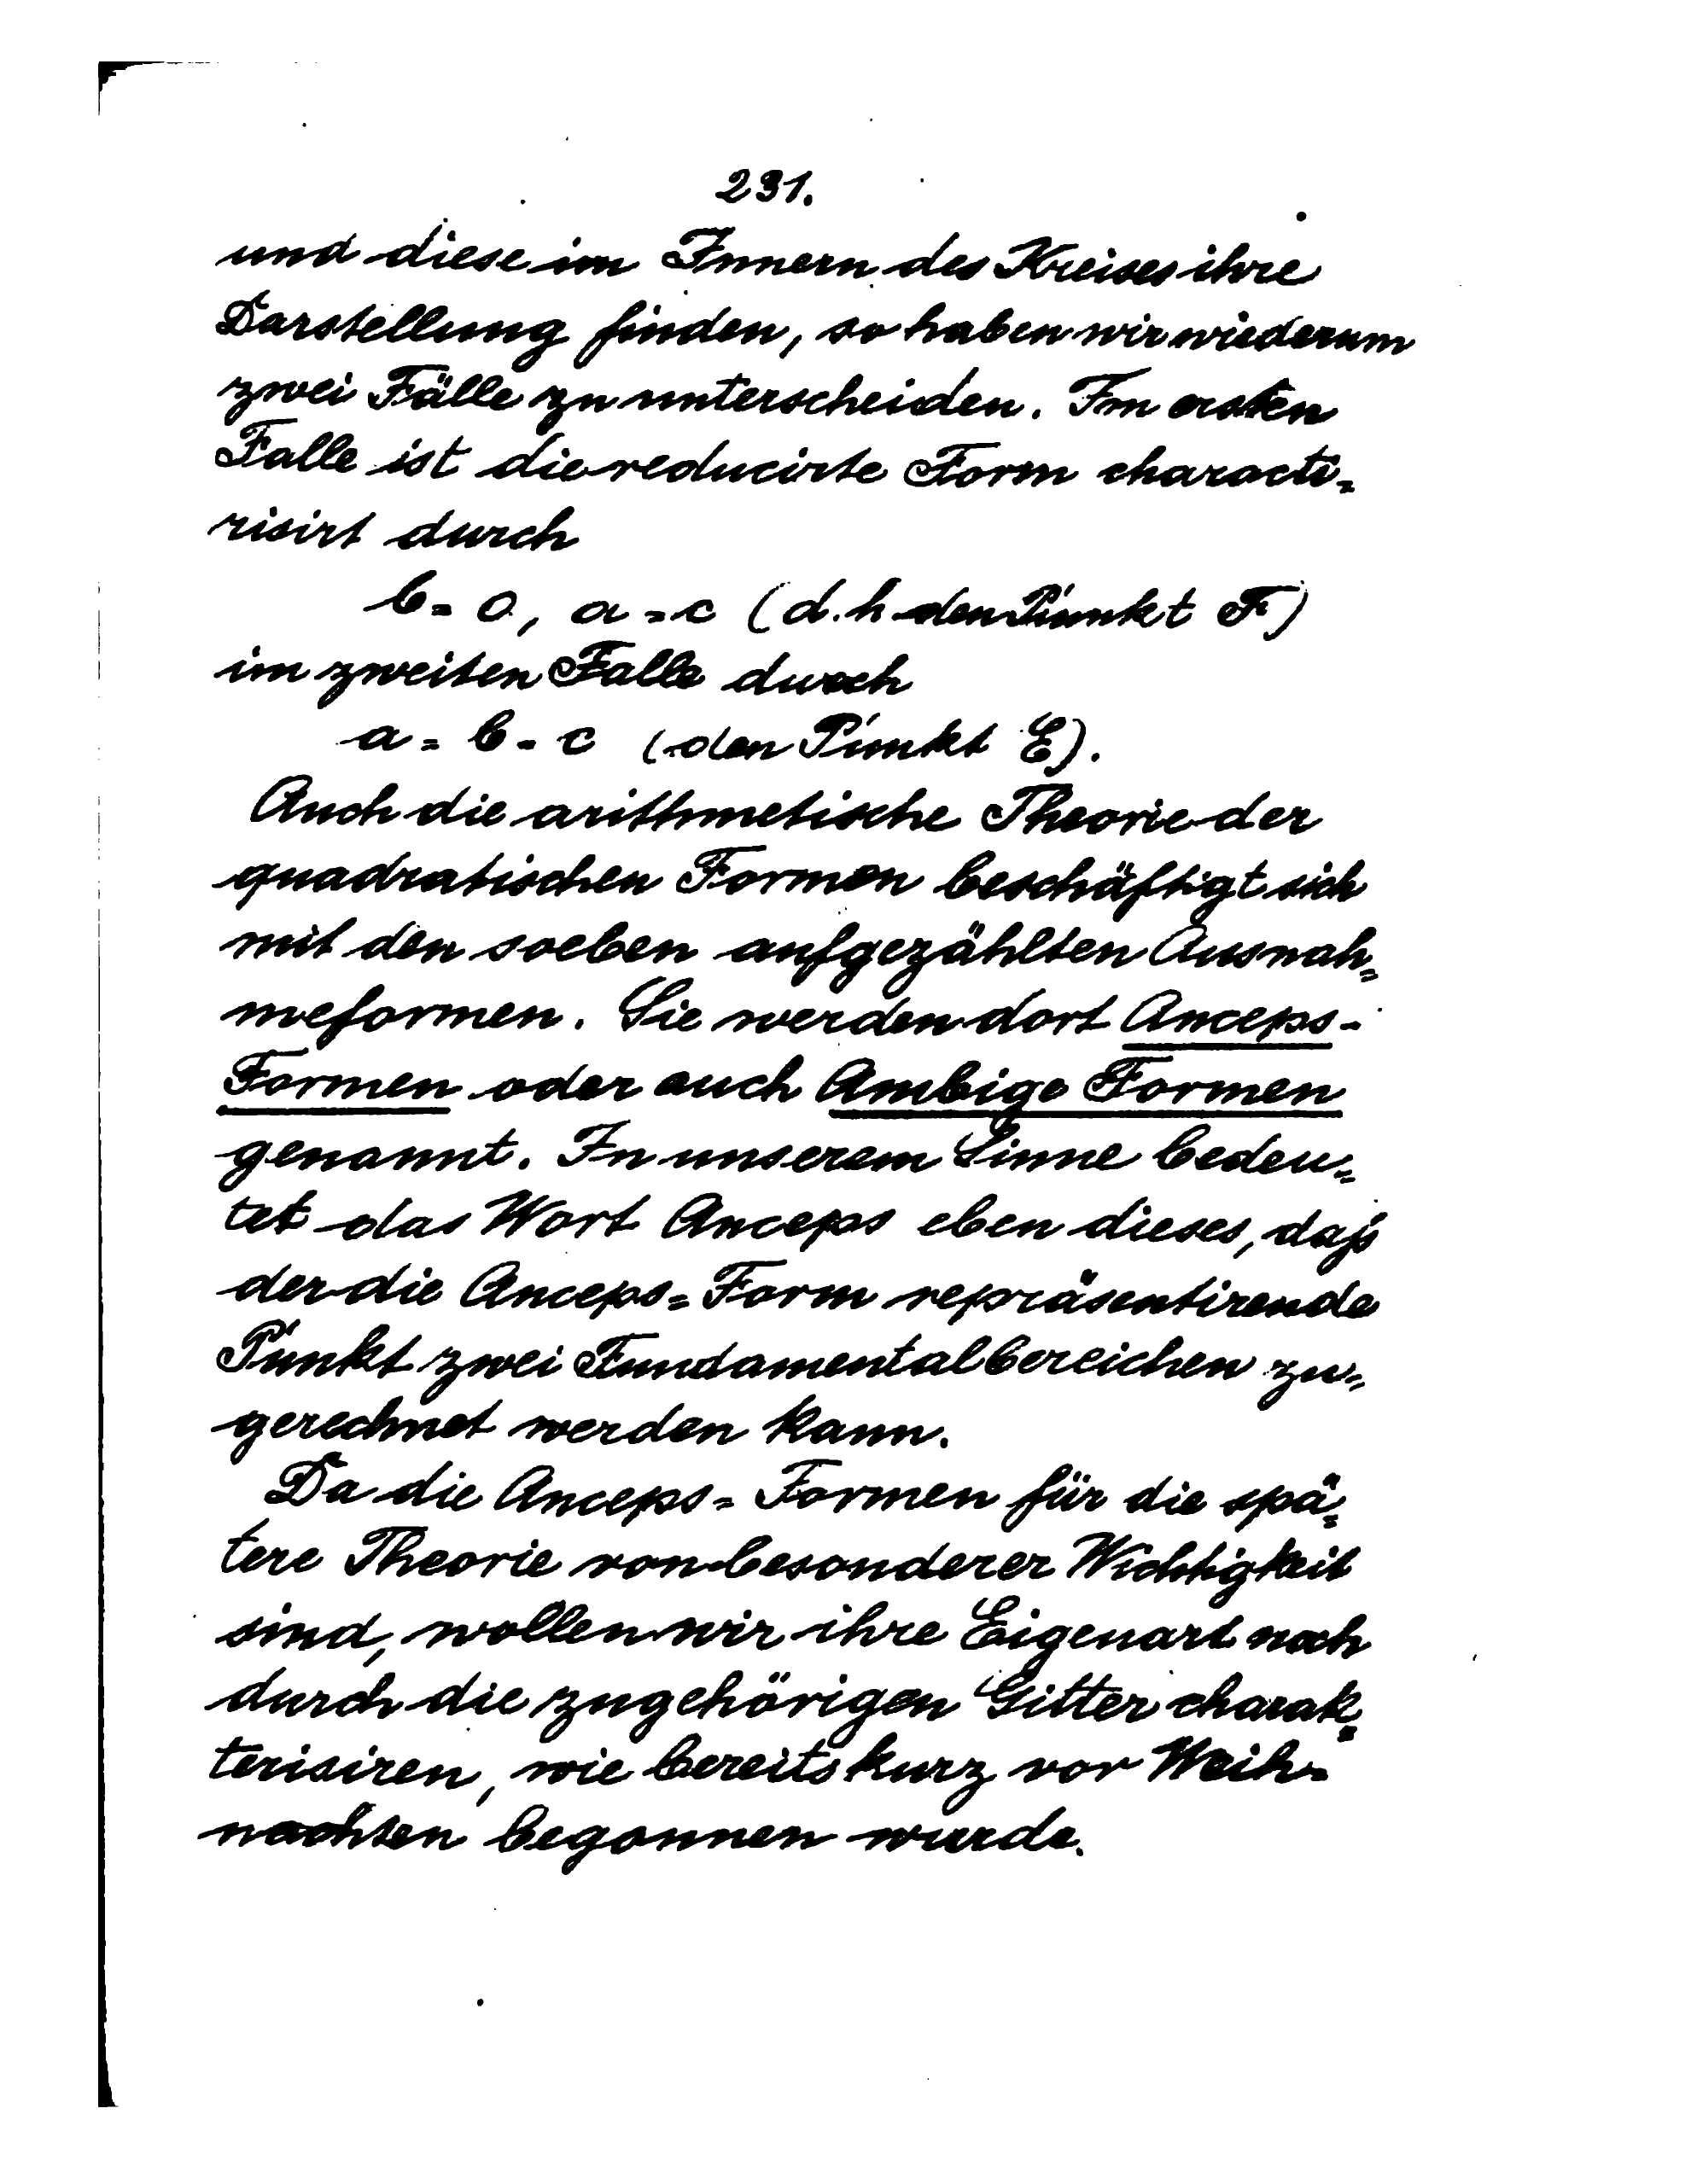 231.
und diese im Innern des Kreises ihre
Darstellung finden, so haben wir wiederum
zwei Fälle zu unterscheiden. Im ersten
Falle ist die reducirte Form characte=
risirt durch
b = 0, a = c (d.h. den Punkt F)
im zweiten Falle durch
a = b = c (den Punkt E).
Auch die arithmetische Theorie der
quadratischen Formen beschäftigt sich
mit den soeben aufgezählten Ausnah=
meformen. Sie werden dort Anceps-
Formen oder auch Ambige Formen
genannt. In unserem Sinne bedeu=
tet das Wort Anceps eben dieses, daß
der die Anceps=Form repräsentirende
Punkt zwei Fundamentalbereichen zu=
gerechnet werden kann.
Da die Anceps=Formen für die spä=
tere Theorie von besonderer Wichtigkeit
sind, wollen wir ihre Eigenart noch
durch die zugehörigen Gitter charak=
terisiren, wie bereits kurz vor Weih=
nachten begonnen wurde.